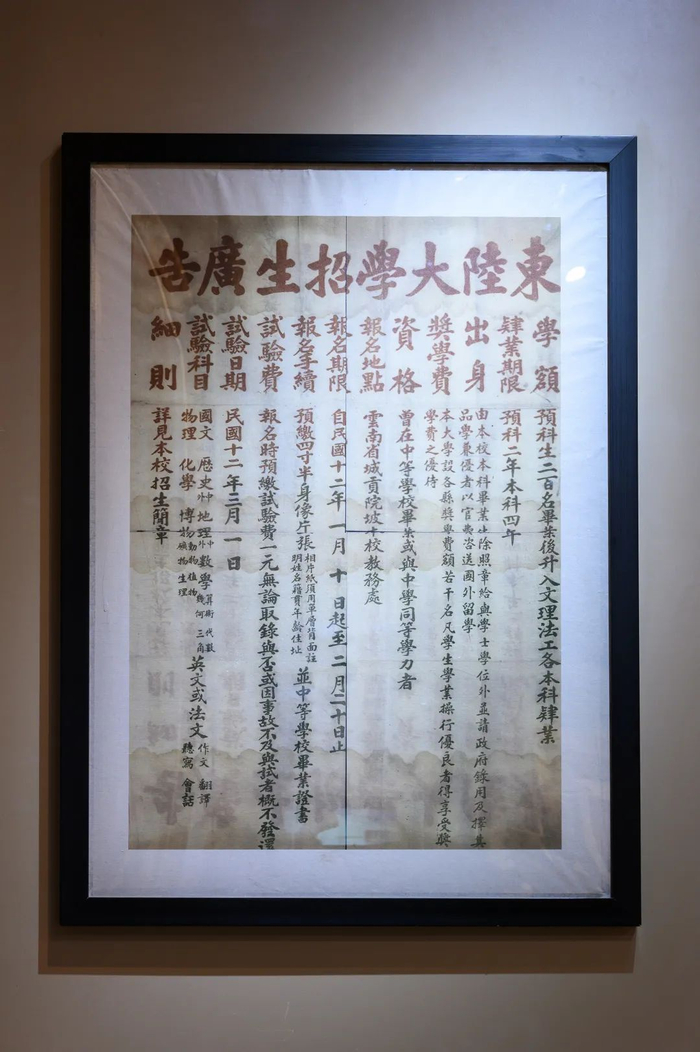 東陸大學招生廣告
學額 預科生二百名畢業後升入文理法工各本科肄業
肄業期限 預科二年本科四年
出身 由本校本科畢業生除照章給與學士學位外並請政府錄用及擇其
品學兼優者以官費咨送國外留學
獎學費 本大學設各縣獎學費額若干名凡學生學業操行優良者得享受獎
學費之優待
資格 曾在中等學校畢業或與中學同等學力者
報名地點 雲南省城貢院坡本校教務處
報名期限 自民國十二年一月十日起至二月二十日止
報名手續 預繳四寸半身像片張相片紙須用單層背面註
明姓名籍貫年齡住址並中等學校畢業證書
試驗費 報名時預繳試驗費一元無論取錄與否或因事故不及與試者概不發還
試驗日期 民國十二年三月一日
試驗科目 國文 歷史中外 地理中外 數學算術 代數 幾何 三角 英文或法文作文 翻譯 聽寫 會話
物理 化學 博物動物 植物 礦物 生理
細則 詳見本校招生簡章